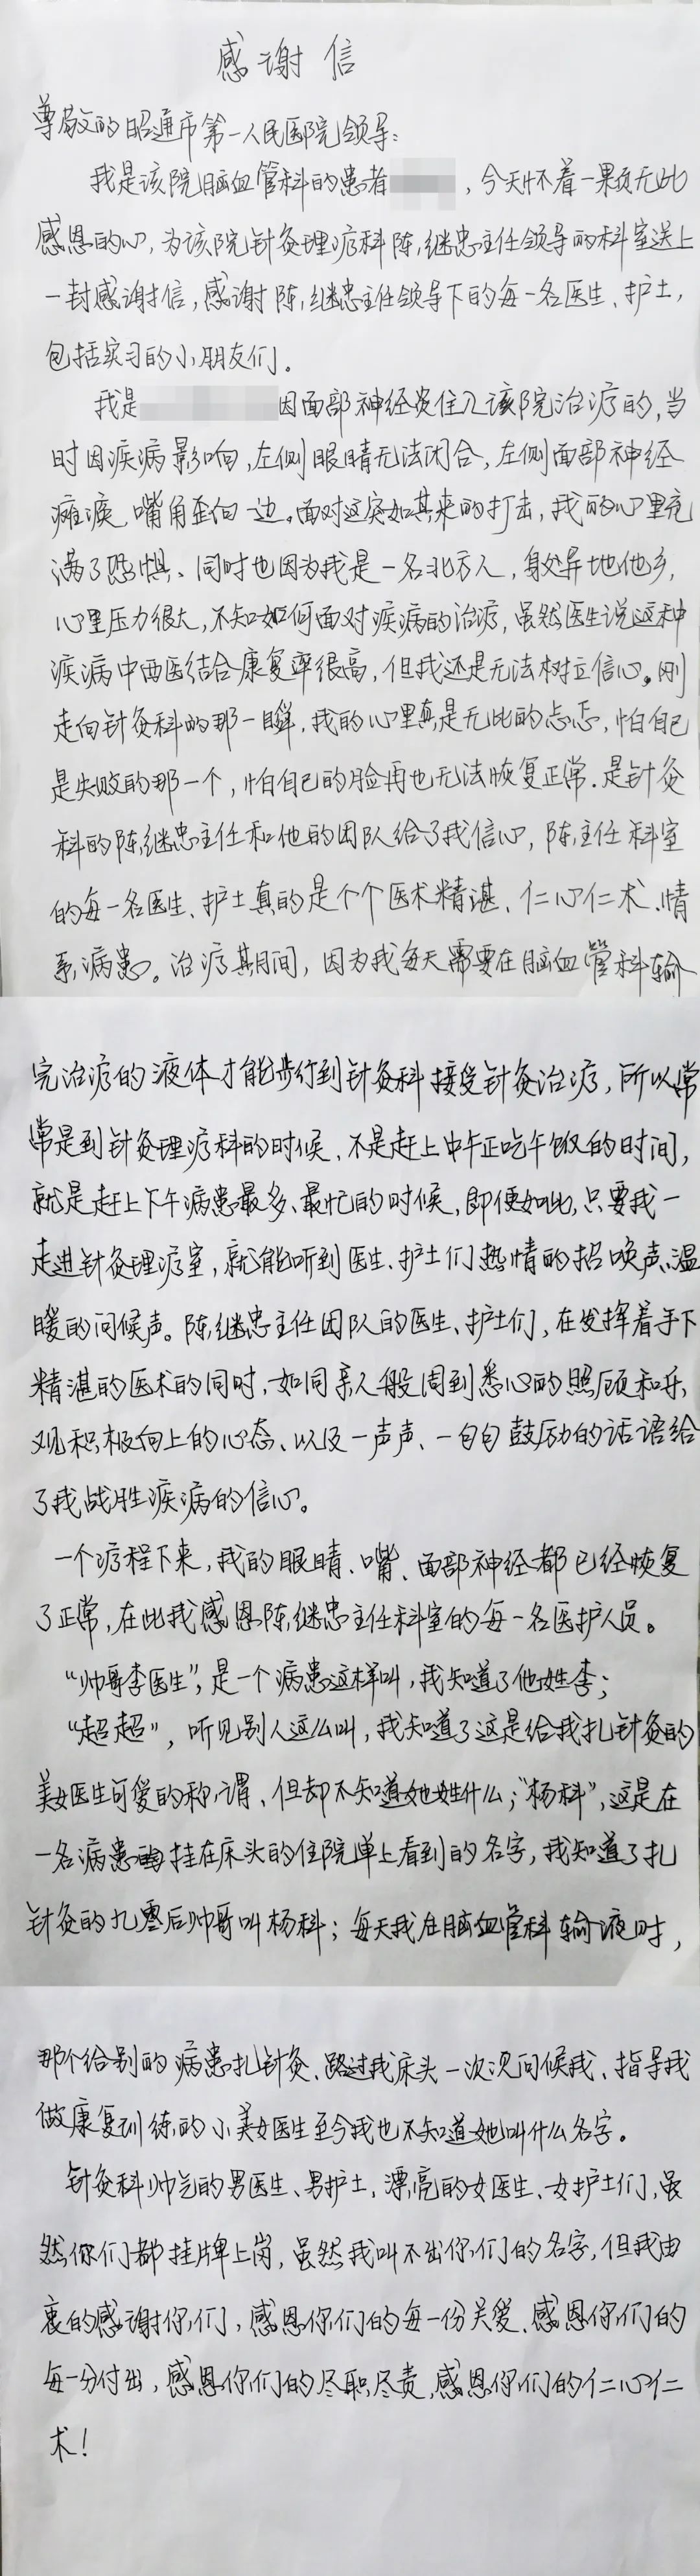 感谢信
尊敬的昭通市第一人民医院领导:
我是该院脑血管科的患者 ,今天怀着一颗无比
感恩的心,为该院针灸理疗科陈继忠主任领导的科室送上
一封感谢信,感谢陈继忠主任领导下的每一名医生、护士,
包括实习的小朋友们。
我是 因面部神经炎住入该院治疗的,当
时因疾病影响,左侧眼睛无法闭合,左侧面部神经
瘫痪,嘴角歪向一边。面对这突如其来的打击,我的心里充
满了恐惧、同时也因为我是一名北方人,身处异地他乡,
心里压力很大,不知如何面对疾病的治疗,虽然医生说这种
疾病中西医结合康复率很高,但我还是无法树立信心。刚
走向针灸科的那一瞬,我的心里真是无比的忐忑,怕自己
是失败的那一个,怕自己的脸再也无法恢复正常.是针灸
科的陈继忠主任和他的团队给了我信心,陈主任科室
的每一名医生、护士真的是个个医术精湛、仁心仁术、情
系病患。治疗其间,因为我每天需要在脑血管科输
完治疗的液体才能步行到针灸科接受针灸治疗,所以常
常是到针灸理疗科的时候,不是赶上中午正吃午饭的时间,
就是赶上下午病患最多、最忙的时候,即便如此,只要我一
走进针灸理疗室,就能听到医生、护士们热情的招唤声、温
暖的问候声。陈继忠主任团队的医生、护士们,在发挥着手下
精湛的医术的同时,如同亲人般周到悉心的照顾和乐
观积极向上的心态、以及一声声、一句句鼓励的话语给
了我战胜疾病的信心。
一个疗程下来,我的眼睛、嘴、面部神经都已经恢复
了正常,在此我感恩陈继忠主任科室的每一名医护人员。
“帅哥李医生”,是一个病患这样叫,我知道了他姓李;
“超超”,听见别人这么叫,我知道了这是给我扎针灸的
美女医生可爱的称谓、但却不知道她姓什么;“杨科”,这是在
一名病患 挂在床头的住院单上看到的名字,我知道了扎
针灸的九零后帅哥叫杨科;每天我在脑血管科输液时,
那个给别的病患扎针灸、路过我床头一次次问候我、指导我
做康复训练的小美女医生至今我也不知道她叫什么名字。
针灸科帅气的男医生、男护士,漂亮的女医生、女护士们,虽
然你们都挂牌上岗,虽然我叫不出你们的名字,但我由
衷的感谢你们,感恩你们的每一份关爱、感恩你们的
每一分付出,感恩你们的尽职尽责,感恩你们的仁心仁
术!